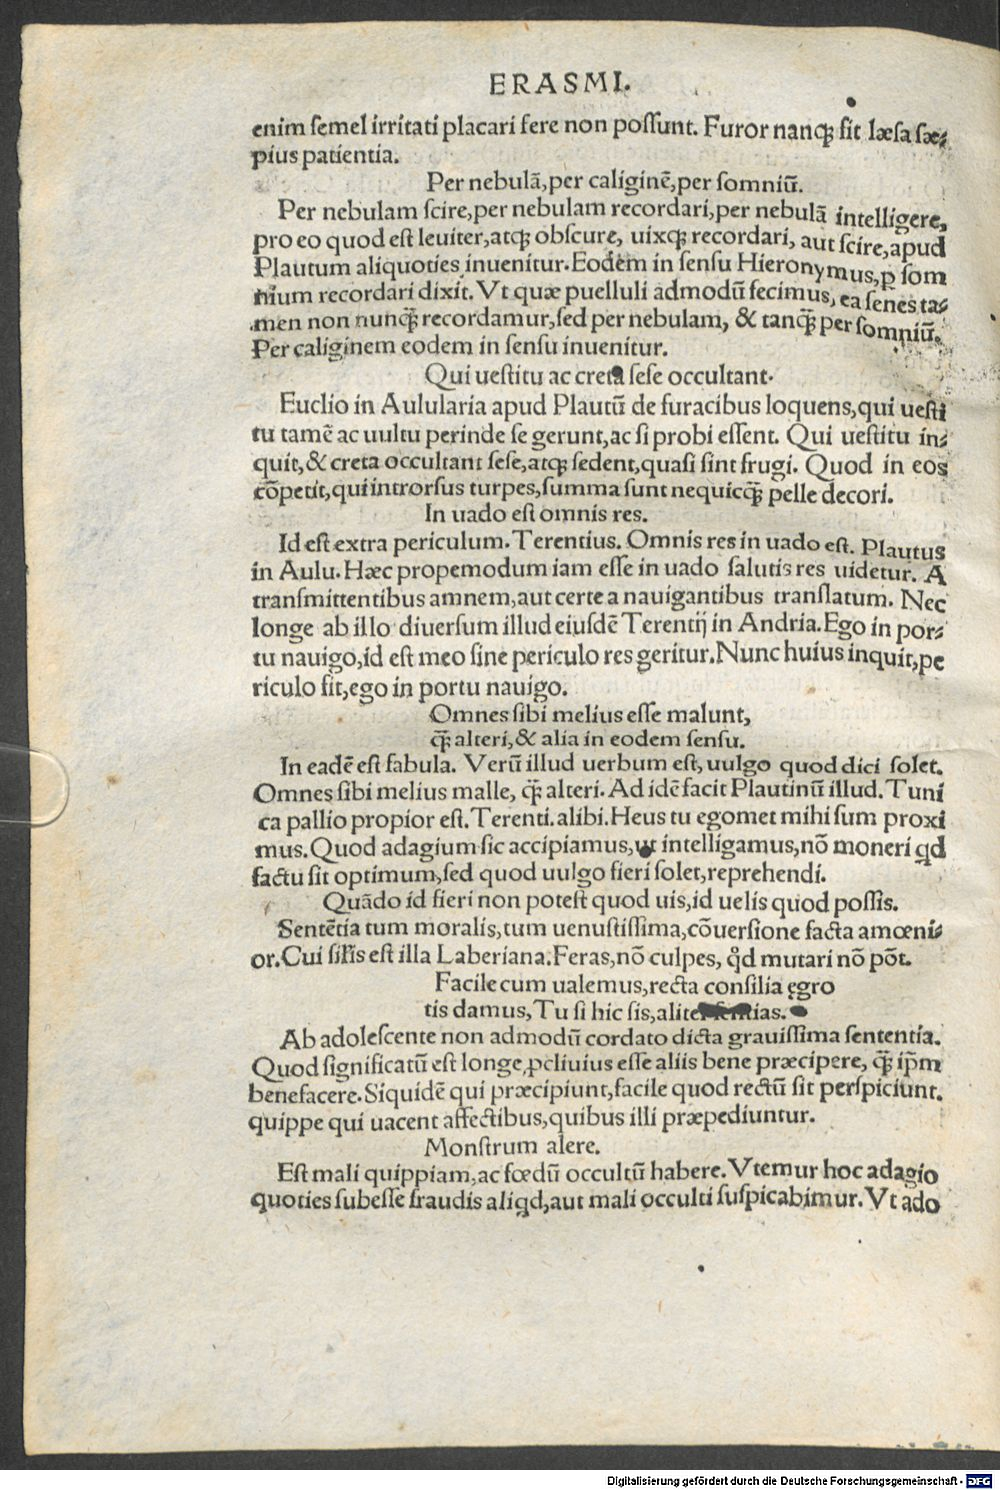 ERASMI.
enim semel irritati placari fere non possunt. Furor nanqꝫ fit læsa sæ-
pius patientia.
Per nebulā, per caliginē, per somniū.
Per nebulam scire, per nebulam recordari, per nebulā intelligere,
pro eo quod est leuiter, atqꝫ obscure, uixqꝫ recordari, aut scire, apud
Plautum aliquoties inuenitur. Eodem in sensu Hieronymus, ꝑ som
nium recordari dixit. Vt quæ puelluli admodū fecimus, ea senes ta-
men non nunqꝫ̄ recordamur, sed per nebulam, & tanqꝫ̄ per somniū.
Per caliginem eodem in sensu inuenitur.
Qui uestitu ac creta sese occultant.
Euclio in Aulularia apud Plautū de furacibus loquens, qui uesti
tu tamē ac uultu perinde se gerunt, ac si probi essent. Qui uestitu in-
quit, & creta occultant sese, atqꝫ sedent, quasi sint frugi. Quod in eos
cōpetit, qui introrsus turpes, summa sunt nequicqꝫ̄ pelle decori.
In uado est omnis res.
Id est extra periculum. Terentius. Omnis res in uado est. Plautus
in Aulu. Hæc propemodum iam esse in uado salutis res uidetur. A
transmittentibus amnem, aut certe a nauigantibus translatum. Nec
longe ab illo diuersum illud eiusdē Terentij in Andria. Ego in por-
tu nauigo, id est meo sine periculo res geritur. Nunc huius inquit, pe
riculo fit, ego in portu nauigo.
Omnes sibi melius esse malunt,
qꝫ̄ alteri, & alia in eodem sensu.
In eadē est fabula. Verū illud uerbum est, uulgo quod dici solet.
Omnes sibi melius malle, qꝫ̄ alteri. Ad idē facit Plautinū illud. Tuni
ca pallio propior est. Terenti. alibi. Heus tu egomet mihi sum proxi
mus. Quod adagium sic accipiamus, ut intelligamus, nō moneri qd
factu sit optimum, sed quod uulgo fieri solet, reprehendi.
Quādo id fieri non potest quod uis, id uelis quod possis.
Sentētia tum moralis, tum uenustissima, cōuersione facta amœni-
or. Cui sil̄is est illa Laberiana. Feras, nō culpes, qd̄ mutari nō pōt.
Facile cum ualemus, recta consilia ęgro
tis damus, Tu si hic sis, aliter sentias.
Ab adolescente non admodū cordato dicta grauissima sententia.
Quod significatū est longe ꝓcliuius esse aliis bene præcipere, qꝫ̄ ip̄m
benefacere. Siquidē qui præcipiunt, facile quod rectū sit perspiciunt.
quippe qui uacent affectibus, quibus illi præpediuntur.
Monstrum alere.
Est mali quippiam, ac fœdū occultū habere. Vtemur hoc adagio
quoties subesse fraudis aliqd, aut mali occulti suspicabimur. Vt ado
Digitalisierung gefördert durch die Deutsche Forschungsgemeinschaft - DFG